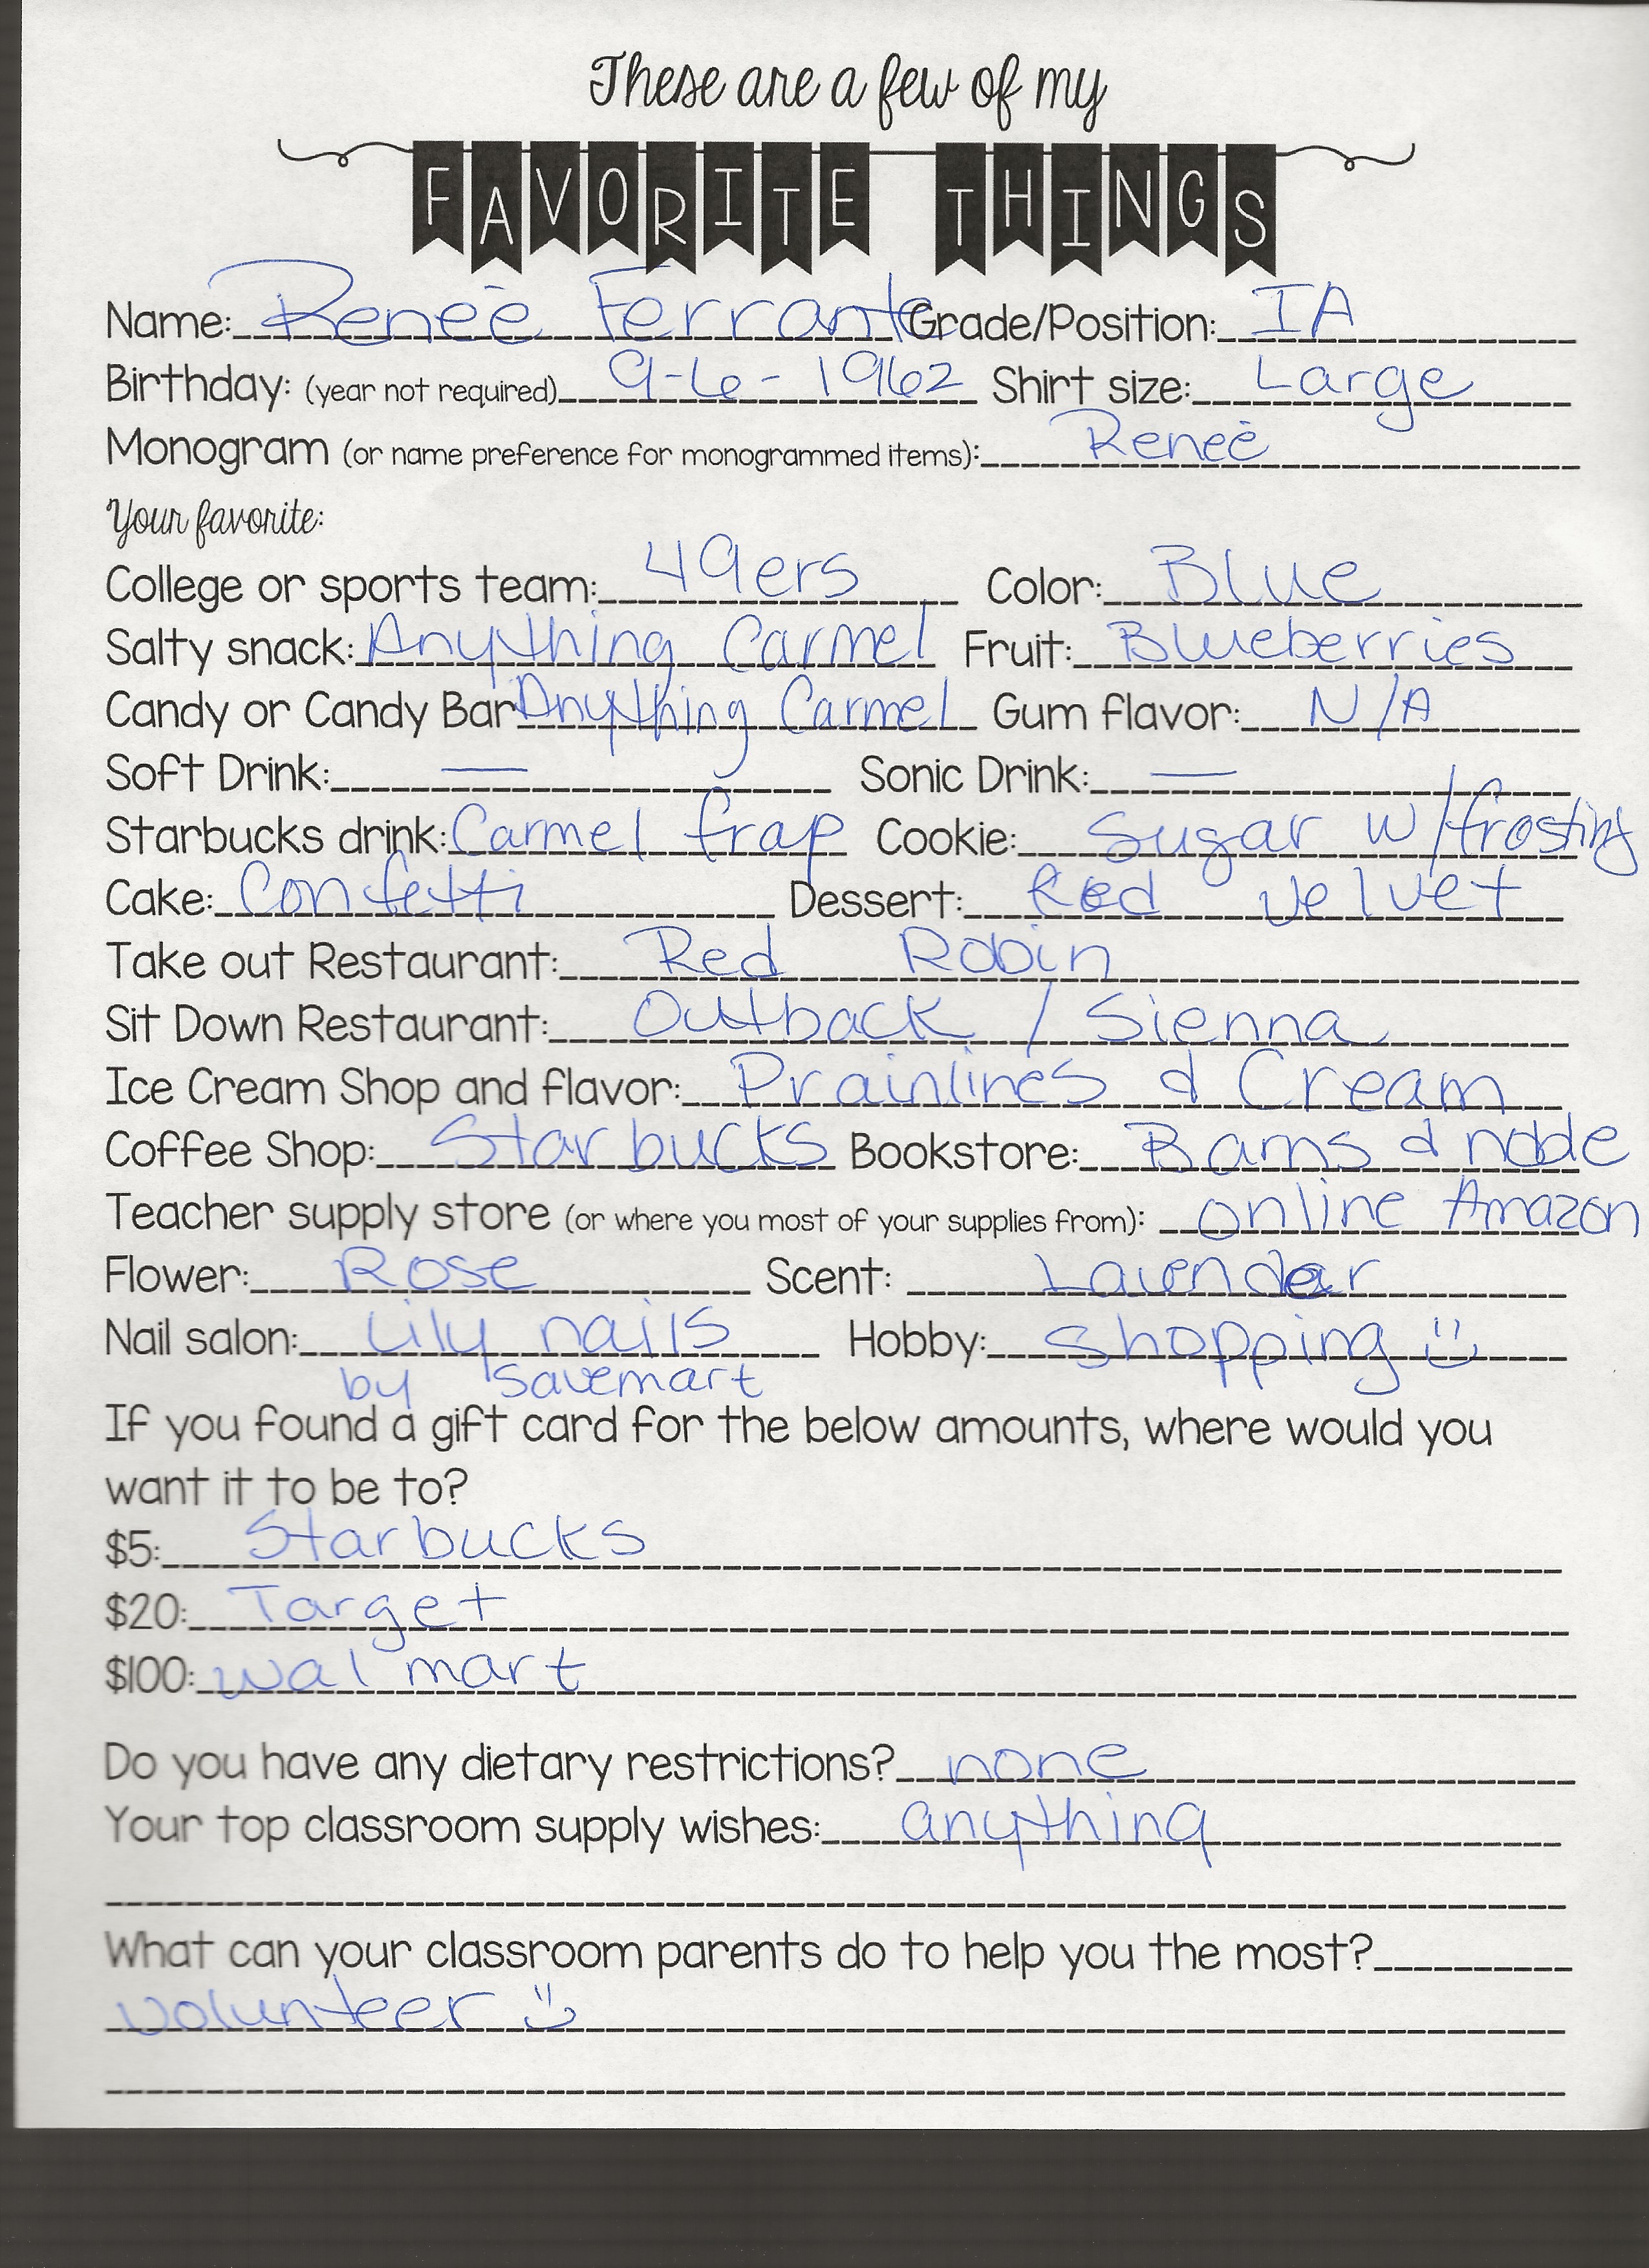 These are a few of my
FAVORITE THINGS
Name: Reneè Ferrante Grade/Position: IA
Birthday: (year not required) 9-6-1962 Shirt size: Large
Monogram (or name preference for monogrammed items): Reneè
Your favorite:
College or sports team: 49ers Color: Blue
Salty snack: Anything Carmel Fruit: Blueberries
Candy or Candy Bar Anything Carmel Gum flavor: N/A
Soft Drink: — Sonic Drink: —
Starbucks drink: Carmel frap Cookie: Sugar w/frosting
Cake: Confetti Dessert: Red velvet
Take out Restaurant: Red Robin
Sit Down Restaurant: Outback / Sienna
Ice Cream Shop and flavor: Prainlines & Cream
Coffee Shop: Starbucks Bookstore: Barns & noble
Teacher supply store (or where you most of your supplies from): online Amazon
Flower: Rose Scent: Lavendar
Nail salon: Lily nails Hobby: Shopping
by Savemart
If you found a gift card for the below amounts, where would you
want it to be to?
$5: Starbucks
$20: Target
$100: wal mart
Do you have any dietary restrictions? none
Your top classroom supply wishes: anything
What can your classroom parents do to help you the most?
volunteer